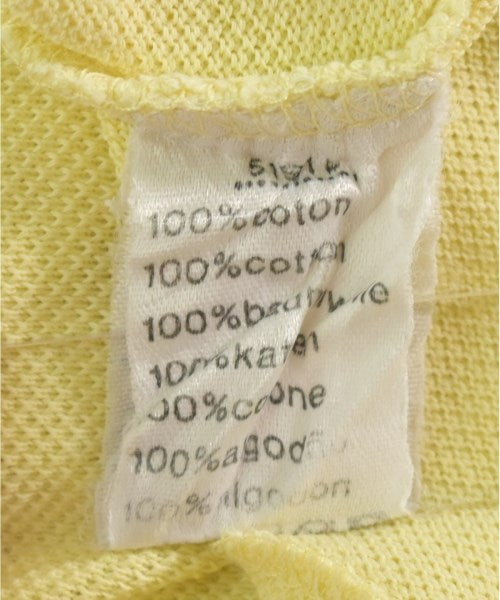 100%coton
100%cotton
100%baumwolle
100%katoen
100%cotone
100%algodão
100%algodon